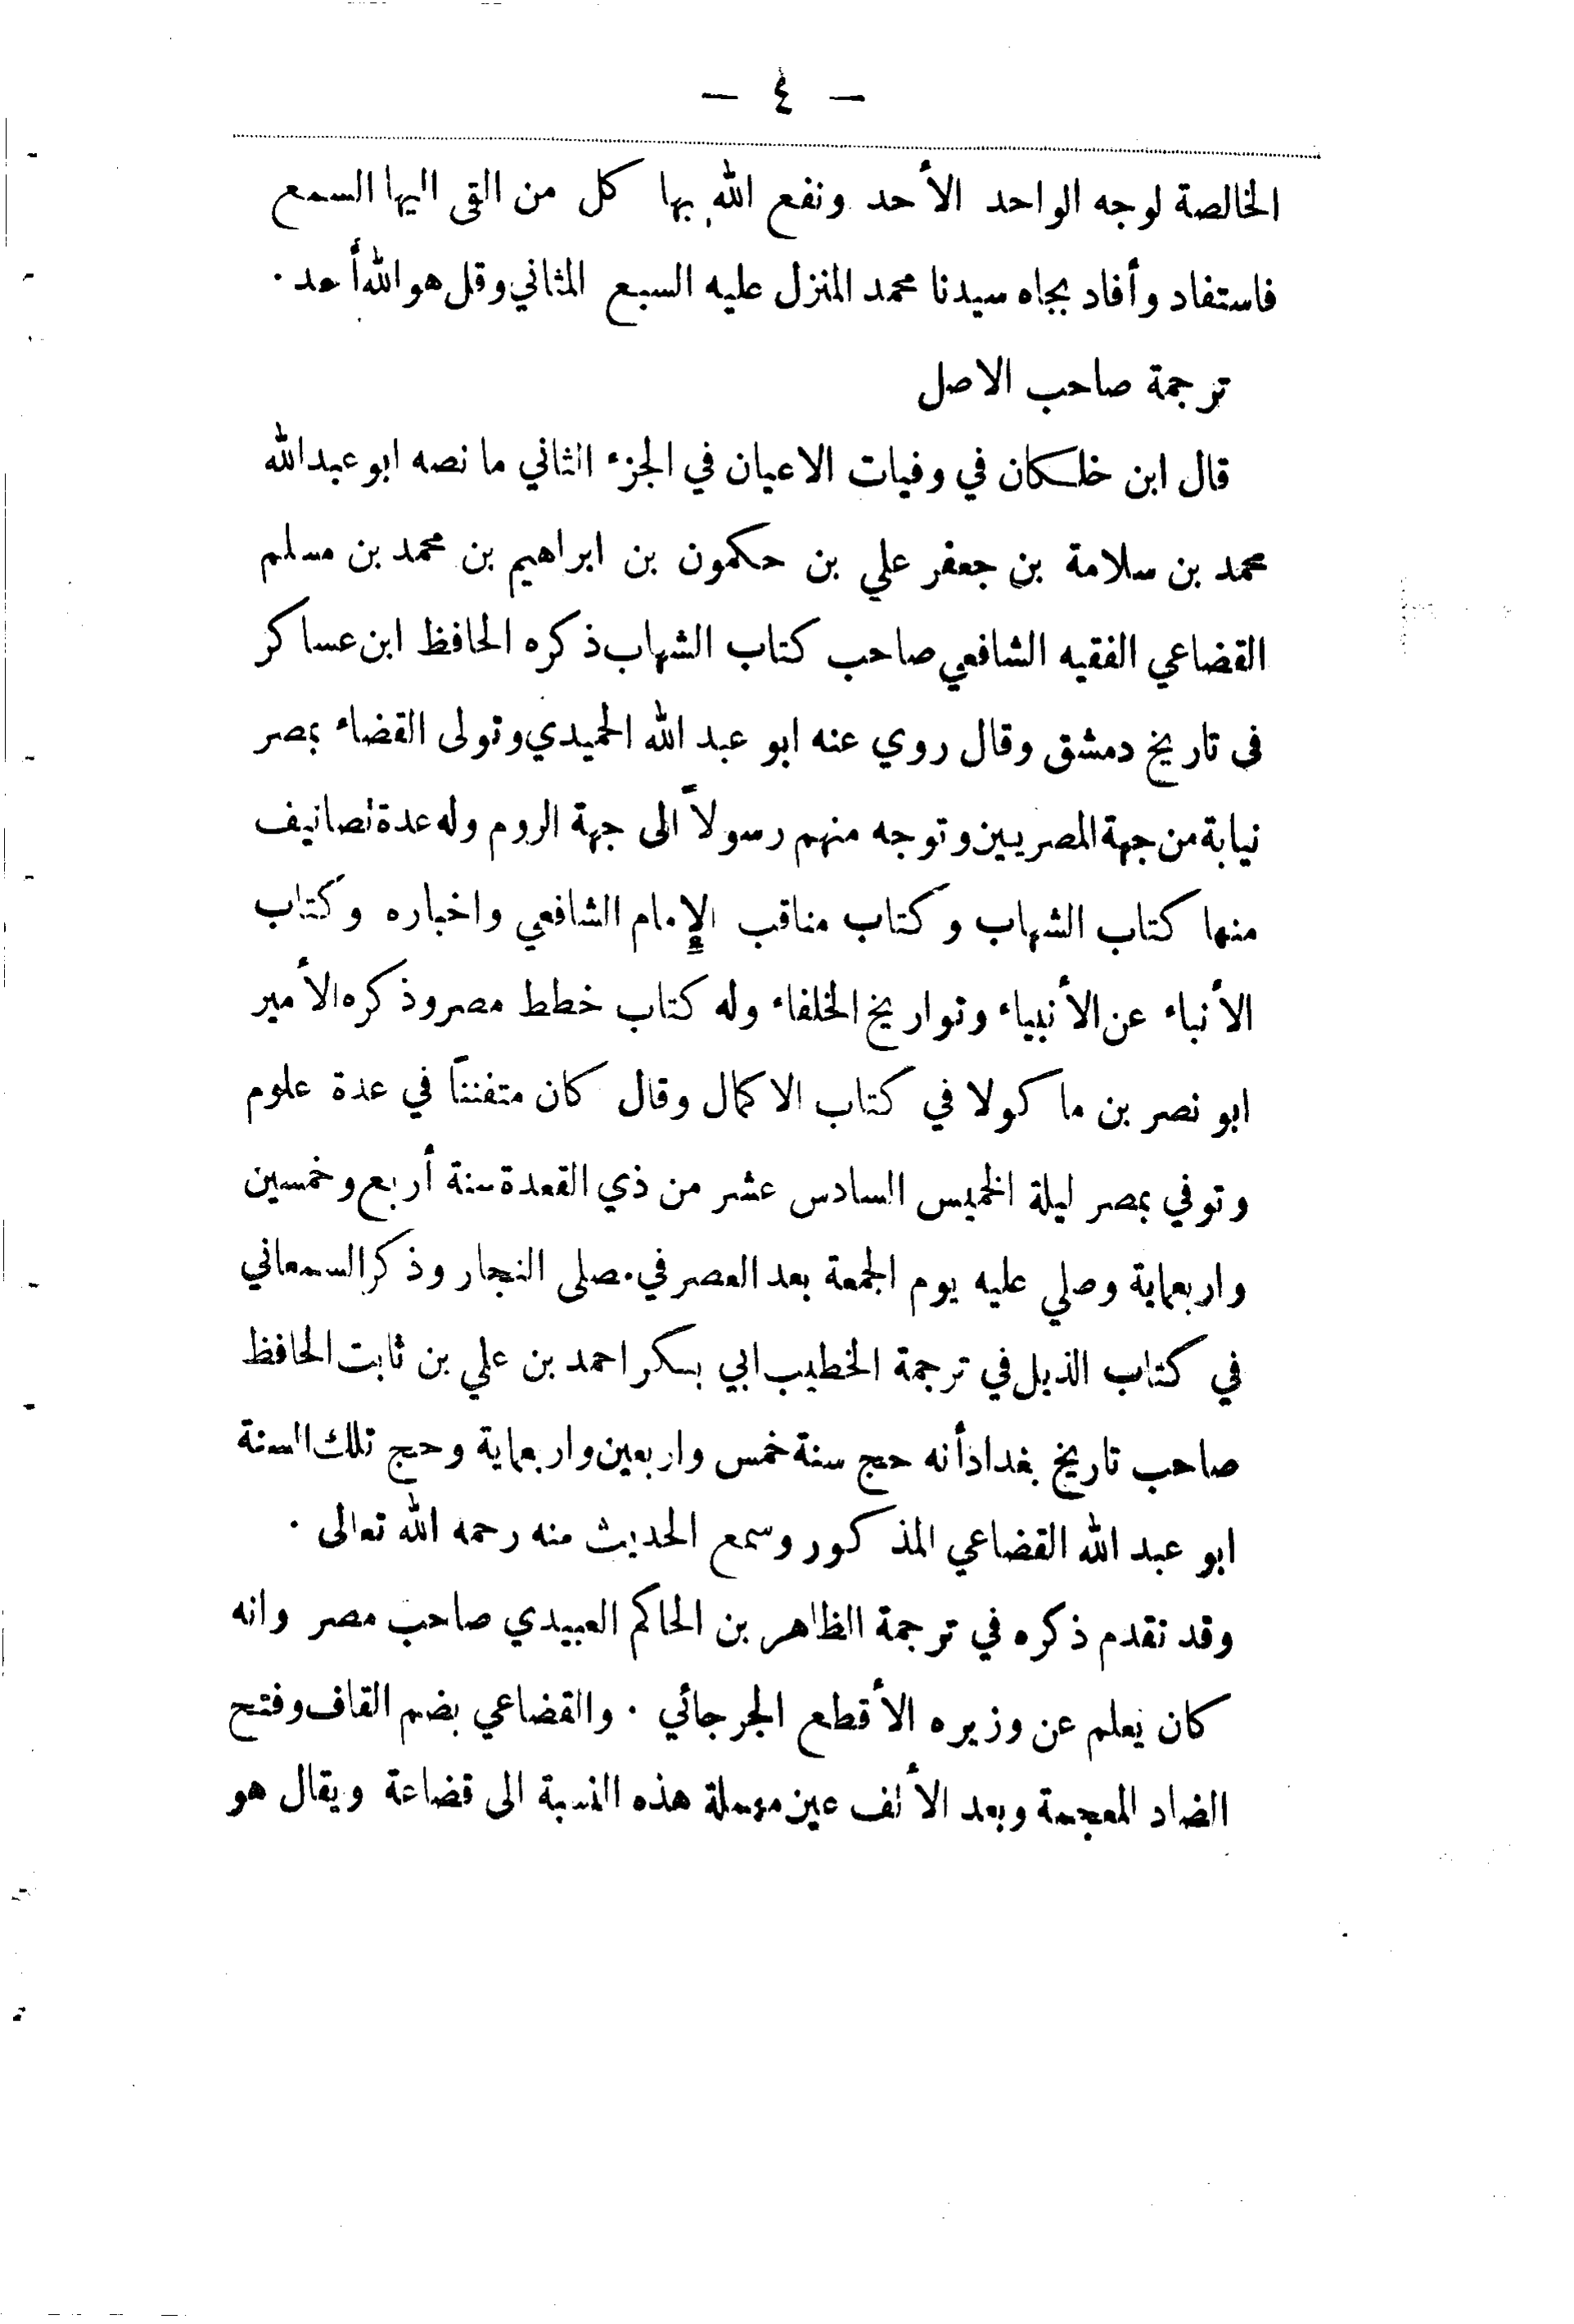 — ٤ —
الخالصة لوجه الواحد الأحد ونفع الله بها كل من القى اليها السمع
فاستفاد وأفاد بجاه سيدنا محمد المنزل عليه السبع المثاني وقل هو الله أحد .
ترجمة صاحب الاصل
قال ابن خلكان في وفيات الاعيان في الجزء الثاني ما نصه ابو عبدالله
محمد بن سلامة بن جعفر علي بن حكمون بن ابراهيم بن محمد بن مسلم
القضاعي الفقيه الشافعي صاحب كتاب الشهاب ذكره الحافظ ابن عساكر
فى تاريخ دمشق وقال روي عنه ابو عبد الله الحميدي وتولى القضاء بمصر
نيابة من جهة المصريين وتوجه منهم رسولاً الى جهة الروم وله عدة تصانيف
منها كتاب الشهاب وكتاب مناقب الإمام الشافعي واخباره وكتاب
الأنباء عن الأنبياء وتواريخ الخلفاء وله كتاب خطط مصر وذكره الأمير
ابو نصر بن ماكولا في كتاب الاكمال وقال كان متفنناً في عدة علوم
وتوفي بمصر ليلة الخميس السادس عشر من ذي القعدة سنة أربع وخمسين
واربعماية وصلي عليه يوم الجمعة بعد العصر في مصلى النجار وذكر السمعاني
في كتاب الذيل في ترجمة الخطيب ابي بكر احمد بن علي بن ثابت الحافظ
صاحب تاريخ بغداد أنه حج سنة خمس واربعين واربعماية وحج تلك السنة
ابو عبد الله القضاعي المذكور وسمع الحديث منه رحمه الله تعالى .
وقد تقدم ذكره في ترجمة الظاهر بن الحاكم العبيدي صاحب مصر وانه
كان يعلم عن وزيره الأقطع الجرجائي . والقضاعي بضم القاف وفتح
الضاد المعجمة وبعد الألف عين مهملة هذه النسبة الى قضاعة ويقال هو